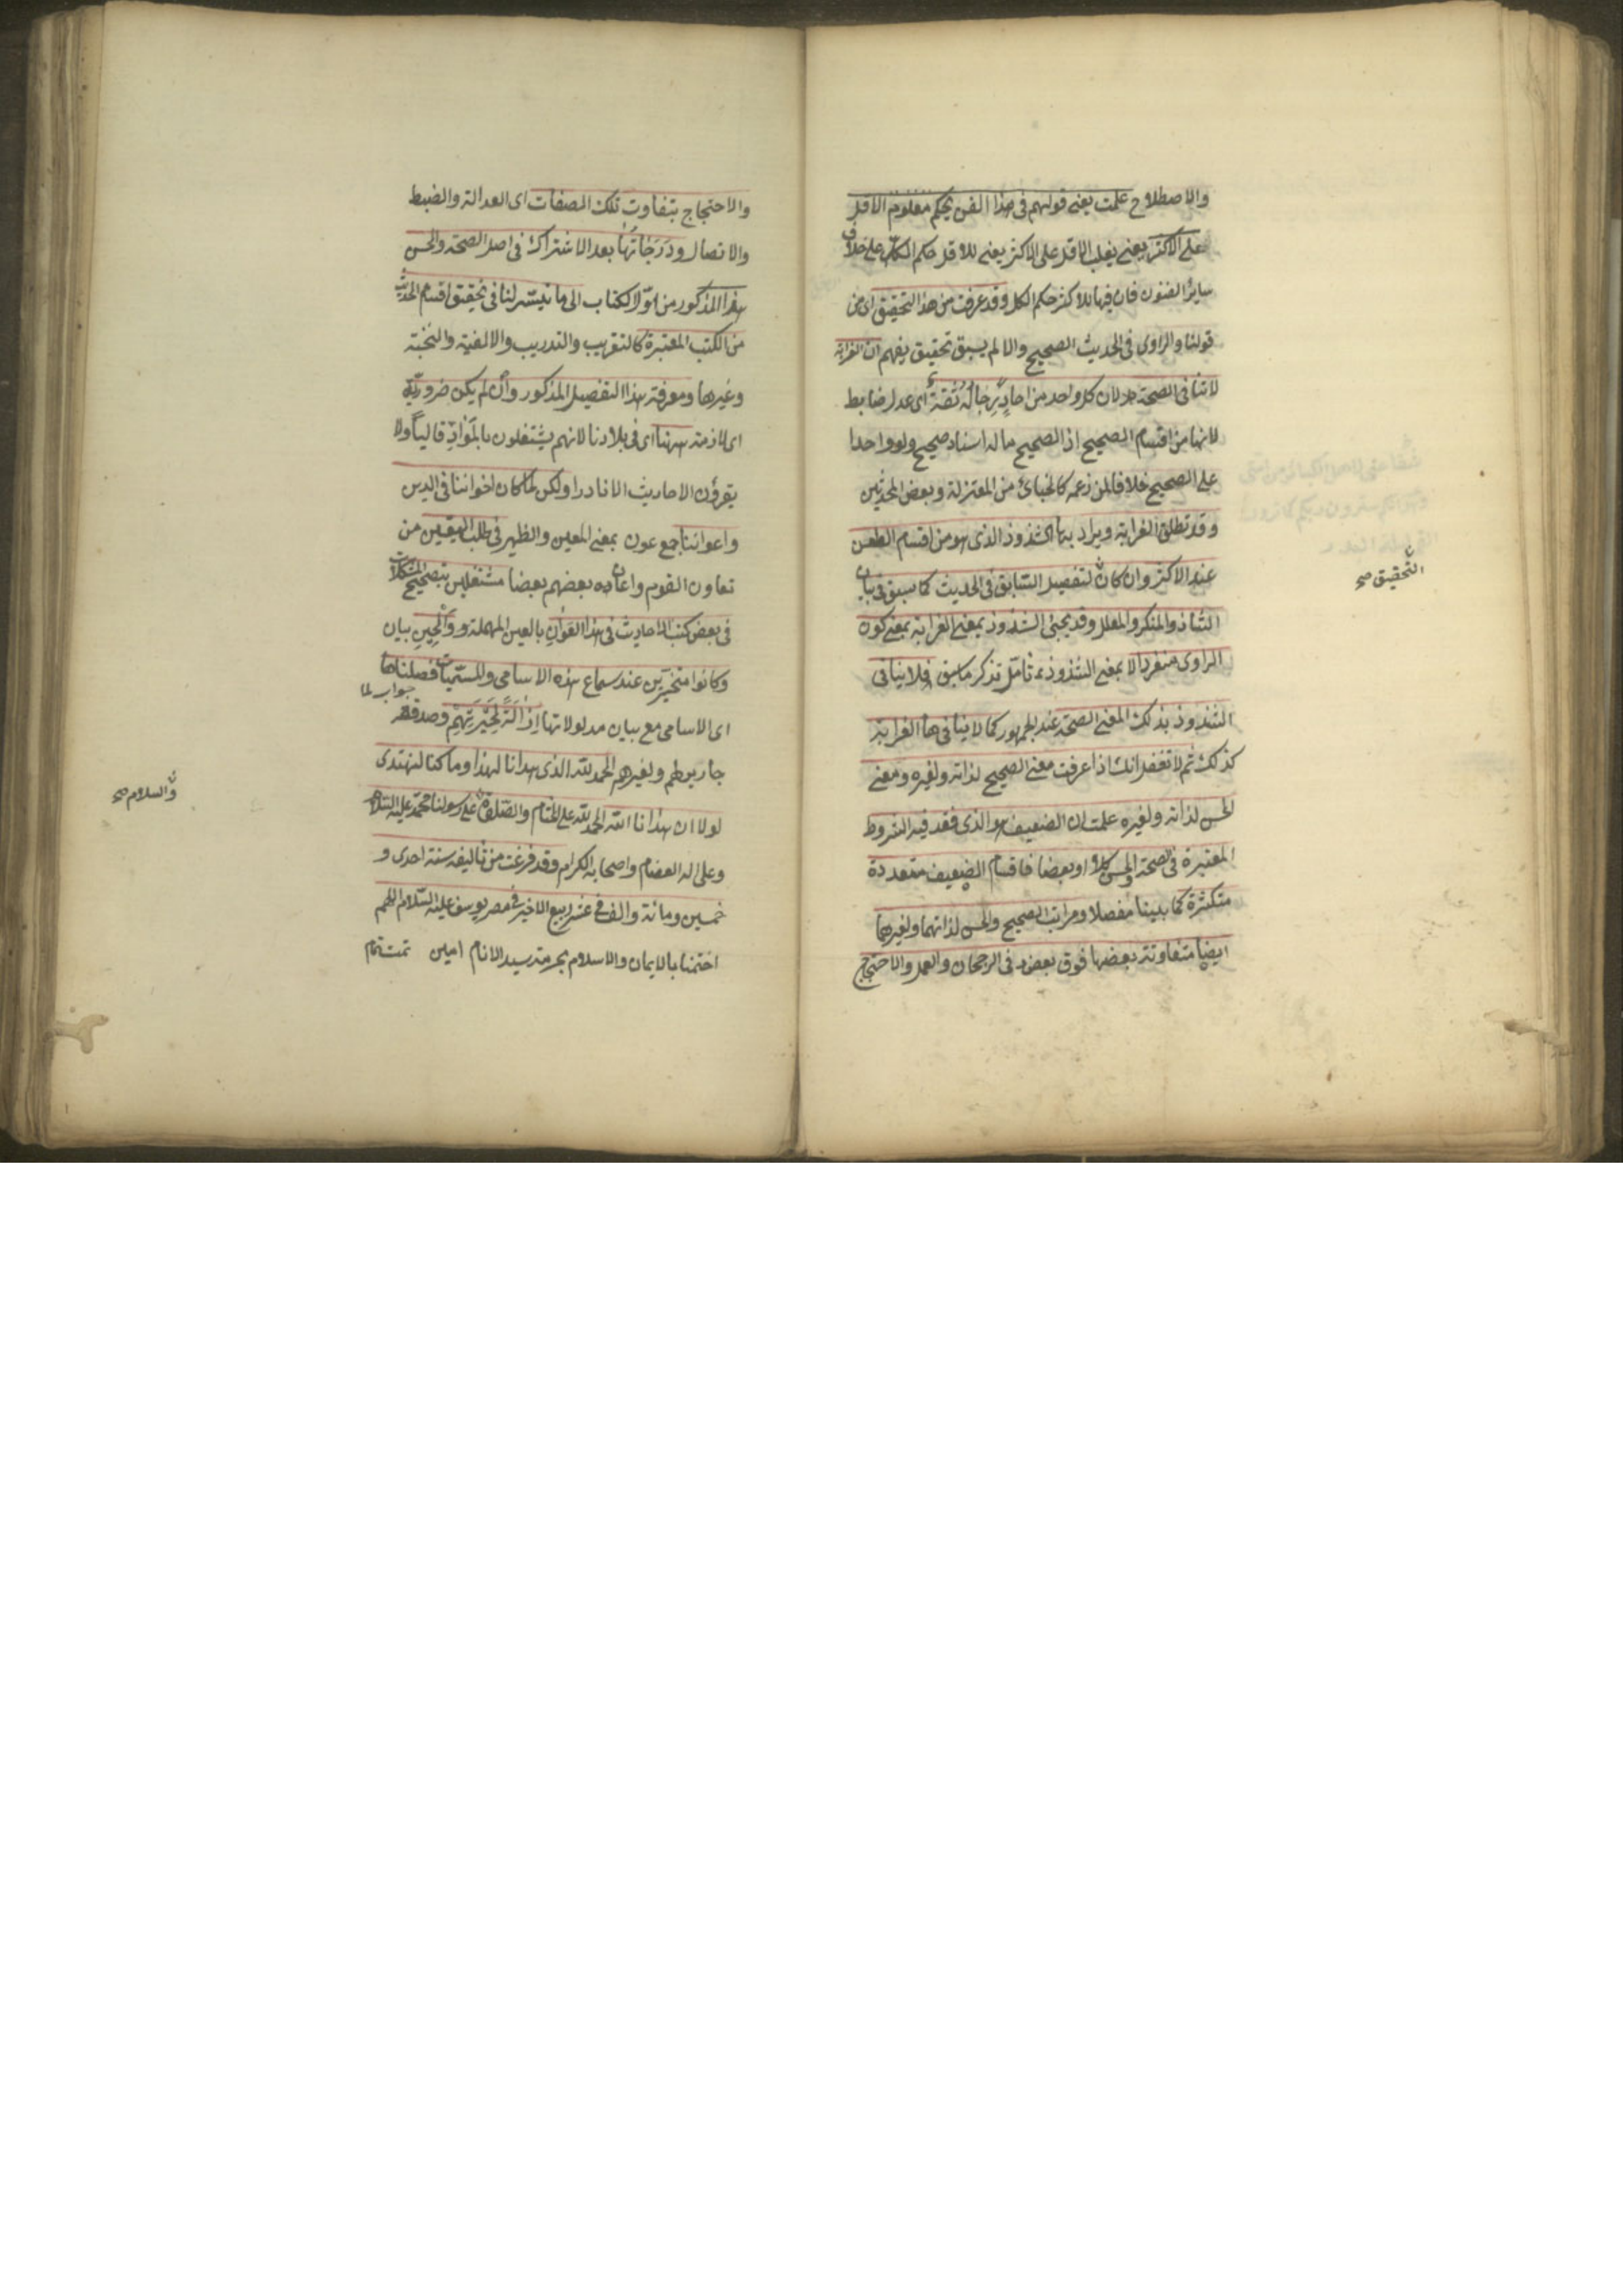 والاصطلاح علمت يعنى قولهم فى هذا الفن يحكم معلوم الاقل
على الاكثر يعنى يغلب الاقل على الاكثر يعنى للاقل حكم الكل على خلاف
ساير الفنون فان فيها للاكثر حكم الكل وقد عرفت من هذا التحقيق اى من
قولنا والراوى فى الحديث الصحيح والا لم يسبق تحقيق يفهم ان الغرابة
لا تنافى الصحة لان كل واحد من احاد رجاله ثقة اى عدل ضابط
لانها من اقسام الصحيح اذ الصحيح ما له اسناد صحيح ولو واحدا
على الصحيح خلافا لمن زعمه كالجبائى من المعتزلة وبعض المحدثين
وقد تطلق الغرابة ويراد بها الشذوذ الذى هو من اقسام الطعن
عند الاكثر وان كان التفصيل السابق فى الحديث كما سبق فى بيان
التحقيق صح
الشاذ والمنكر والمعلل وقد يجئ الشذوذ بمعنى الغرابة بمعنى كون
الراوى منفردا لا بمعنى الشذوذ تأمل تذكر ما سبق فلا ينافى
الشذوذ بذلك المعنى الصحة عند الجمهور كما لا ينافى ها الغرابة
كذلك ثم لا تغفل انك اذا عرفت معنى الصحيح لذاته ولغيره ومعنى
الحسن لذاته ولغيره علمت ان الضعيف هو الذى فقد فيه الشروط
المعتبرة فى الصحة والحسن كلا او بعضا فاقسام الضعيف متعددة
متكثرة كما بينا مفصلا ومراتب الصحيح والحسن لذاتهما ولغيرهما
ايضا متفاوتة بعضها فوق بعض فى الرجحان والعمل والاحتجاج
والاحتجاج بتفاوت تلك الصفات اى العدالة والضبط
والاتصال ودرجاتها بعد الاشتراك فى اصل الصحة والحسن
هذا المذكور من اول الكتاب الى ما تيسر لنا فى تحقيق اقسام الحديث
من الكتب المعتبرة كالتقريب والتدريب والالفية والنخبة
وغيرها ومعرفة هذا التفصيل المذكور وان لم يكن ضرورية
اى لازمة ههنا اى فى بلادنا لانهم يشتغلون بالمواد قاليا ولا
يقرؤن الاحاديث الا نادرا ولكن لما كان اخواننا فى الدين
واعواننا جمع عون بمعنى المعين والظهير فى طلب اليقين من
تعاون القوم واعان بعضهم بعضا مشتغلين بتصحيح المشكلات
فى بعض كتب الاحاديث فى هذا العوان بالعين المهملة والحين بيان
وكانوا متحيرين عند سماع هذه الاسامى والمسميات فصلناها
جواب لما
اى الاسامى مع بيان مدلولاتها ازالة لحيرتهم وصدقة
جارية لهم ولغيرهم الحمد لله الذى هدانا لهذا وما كنا لنهتدى
لولا ان هدانا الله الحمد لله على التمام والصلوة على رسولنا محمد عليه السلام
والسلام صح
وعلى اله العضام واصحابه الكرام وقد فرغت من تأليفه سنة احدى و
خمسين ومائة والف فى عشر ربيع الاخير فى مصر يوسف عليه السلام اللهم
اختمنا بالايمان والاسلام بحرمة سيد الانام امين تمت تمام